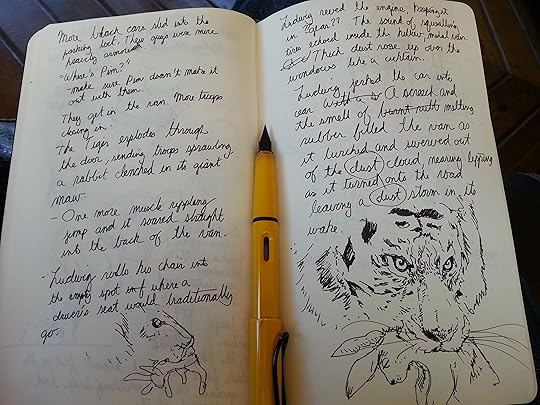 More black cars slid into the
parking lot. These guys were more
heavily armored.
"Where's Pim?"
-make sure Pim doesn't make it
out with them.
They get in the van. More troops
closing in.
The Tiger explodes through
the door, sending troops sprawling,
a rabbit clenched in its giant
maw.
- One more muscle rippling
jump and it soared straight
into the back of the van.
Ludwig rolls his chair into
the empty spot where a
driver's seat would traditionally
go.
Ludwig revved the engine, keeping it
in ?? The sound of squealing
tires echoed inside the hollow, metal van.
Thick dust rose up over the
windows like a curtain.
Ludwig jerked the car into
gear. With a A screech and
the smell of burnt melting
rubber filled the van as
it lurched and swerved out
of the dust cloud, nearing tipping
as it turned onto the road
leaving a dust storm in its
wake.